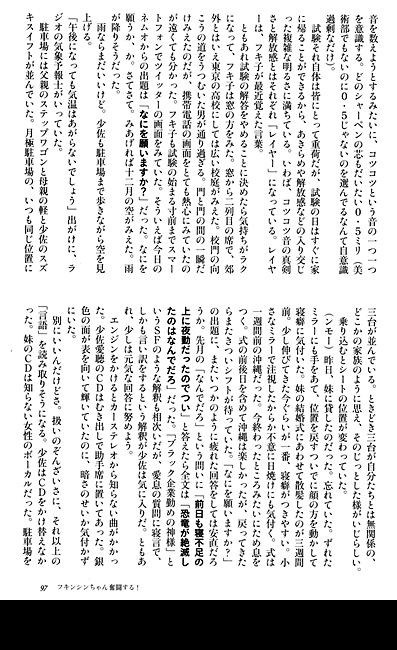 音を数えようとするみたいに、コツコツという音の一つ一つ
を意識する。どのシャーペンの芯もだいたい0・5ミリ（美
術部でもないのに0・5じゃないのを選んでるなんて自意識
過剰なだけ）。
試験それ自体は皆にとって重荷だが、試験の日はすぐに家
に帰ることができるから、あきらめや解放感などの入り交じ
った複雑な明るさに満ちている。いわば、コツコツ音の真剣
さと解放感とはそれぞれ「レイヤー」になっている。レイヤ
ーは、フキ子が最近覚えた言葉。
ともあれ試験の解答をやめることに決めたら気持ちがラク
になって、フキ子は窓の方をみた。窓から二列目の席で、郊
外とはいえ東京の高校にしては広い校庭がみえた。校門の向
こうの道をうつむいた男が通り過ぎる。門と門の間の一瞬だ
けみえたのだが、携帯電話の画面をとても熱心にみていたの
が遠くても分かった。フキ子も試験の始まる寸前までスマー
トフォンでツイッターの画面をみていた。そういえば今日の
ネムオからの出題は「なにを願いますか？」だった。なにを
願うか、か。さてさて。みあげれば十二月の空がみえた。雨
が降りそうだった。
雨ならまだいいけど。少佐も駐車場まで歩きながら空を見
上げる。
「午後になっても気温はあがらないでしょう」出がけに、ラ
ジオの気象予報士がいっていた。
駐車場には父親のステップワゴンと母親の軽と少佐のスズ
キスイフトが並んでいた。月極駐車場の、いつも同じ位置に
三台が並んでいる。ときどき三台が自分たちとは無関係の、
どこかの家族のように思え、そのじっとした様がいじらしい。
乗り込むとシートの位置が変わっていた。
（ンモー）昨日、妹に貸したのだった。忘れていた。ずれた
ミラーにも手をあて、位置を戻すついでに顔の方を動かして
寝癖に気付いた。妹の結婚式にあわせて散髪したのが三週間
前。少し伸びてきた今ぐらいが一番、寝癖がつきやすい。小
さなミラーで注視したからか不意に日焼けにも気付く。式は
一週間前の沖縄だった。今終わったところみたいにため息を
つく。式の前後日を含めて沖縄は楽しかったが、戻ってきた
らまたきついシフトが待っていた。「なにを願いますか？」
の出題に、またいつかのように疲れた回答をしては安直だろ
うか。先月の「なんでだろ」という問いに「前日も寝不足の
上に夜勤だったのでつい」と答えたら全文は「恐竜が絶滅し
たのはなんでだろ」だった。「ブラック企業勤めの神様」と
いうSFのような解釈も相次いだが、愛息の質問に寝言で、
しかも言い訳をするという解釈が少佐は気に入りだ。ともあ
れ、少しは元気な回答に努めよう。
エンジンをかけるとカーステレオから知らない曲がかかっ
た。少佐愛聴のCDはむき出しで助手席に置いてあった。銀
色の面が表を向いて輝いていたのに、暗さのせいか気付かず
にいた。
別にいいんだけどさ。扱いのぞんざいさに、それ以上の
「言語」を読み取りそうになる。少佐はCDをかけ替えなか
った。妹のCDは知らない女性のボーカルだった。駐車場を
97 フキンシンちゃん奮闘する！